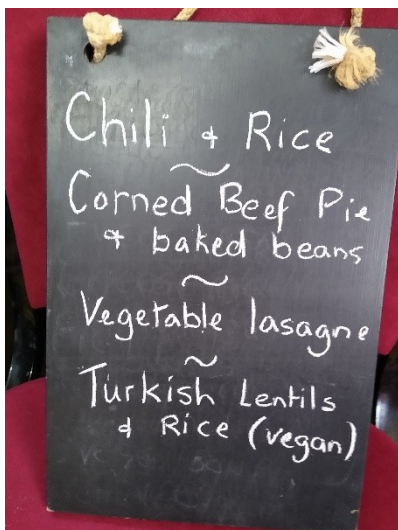 Chili & Rice
~
Corned Beef Pie
& baked beans
~
Vegetable lasagne
~
Turkish Lentils
& Rice (vegan)